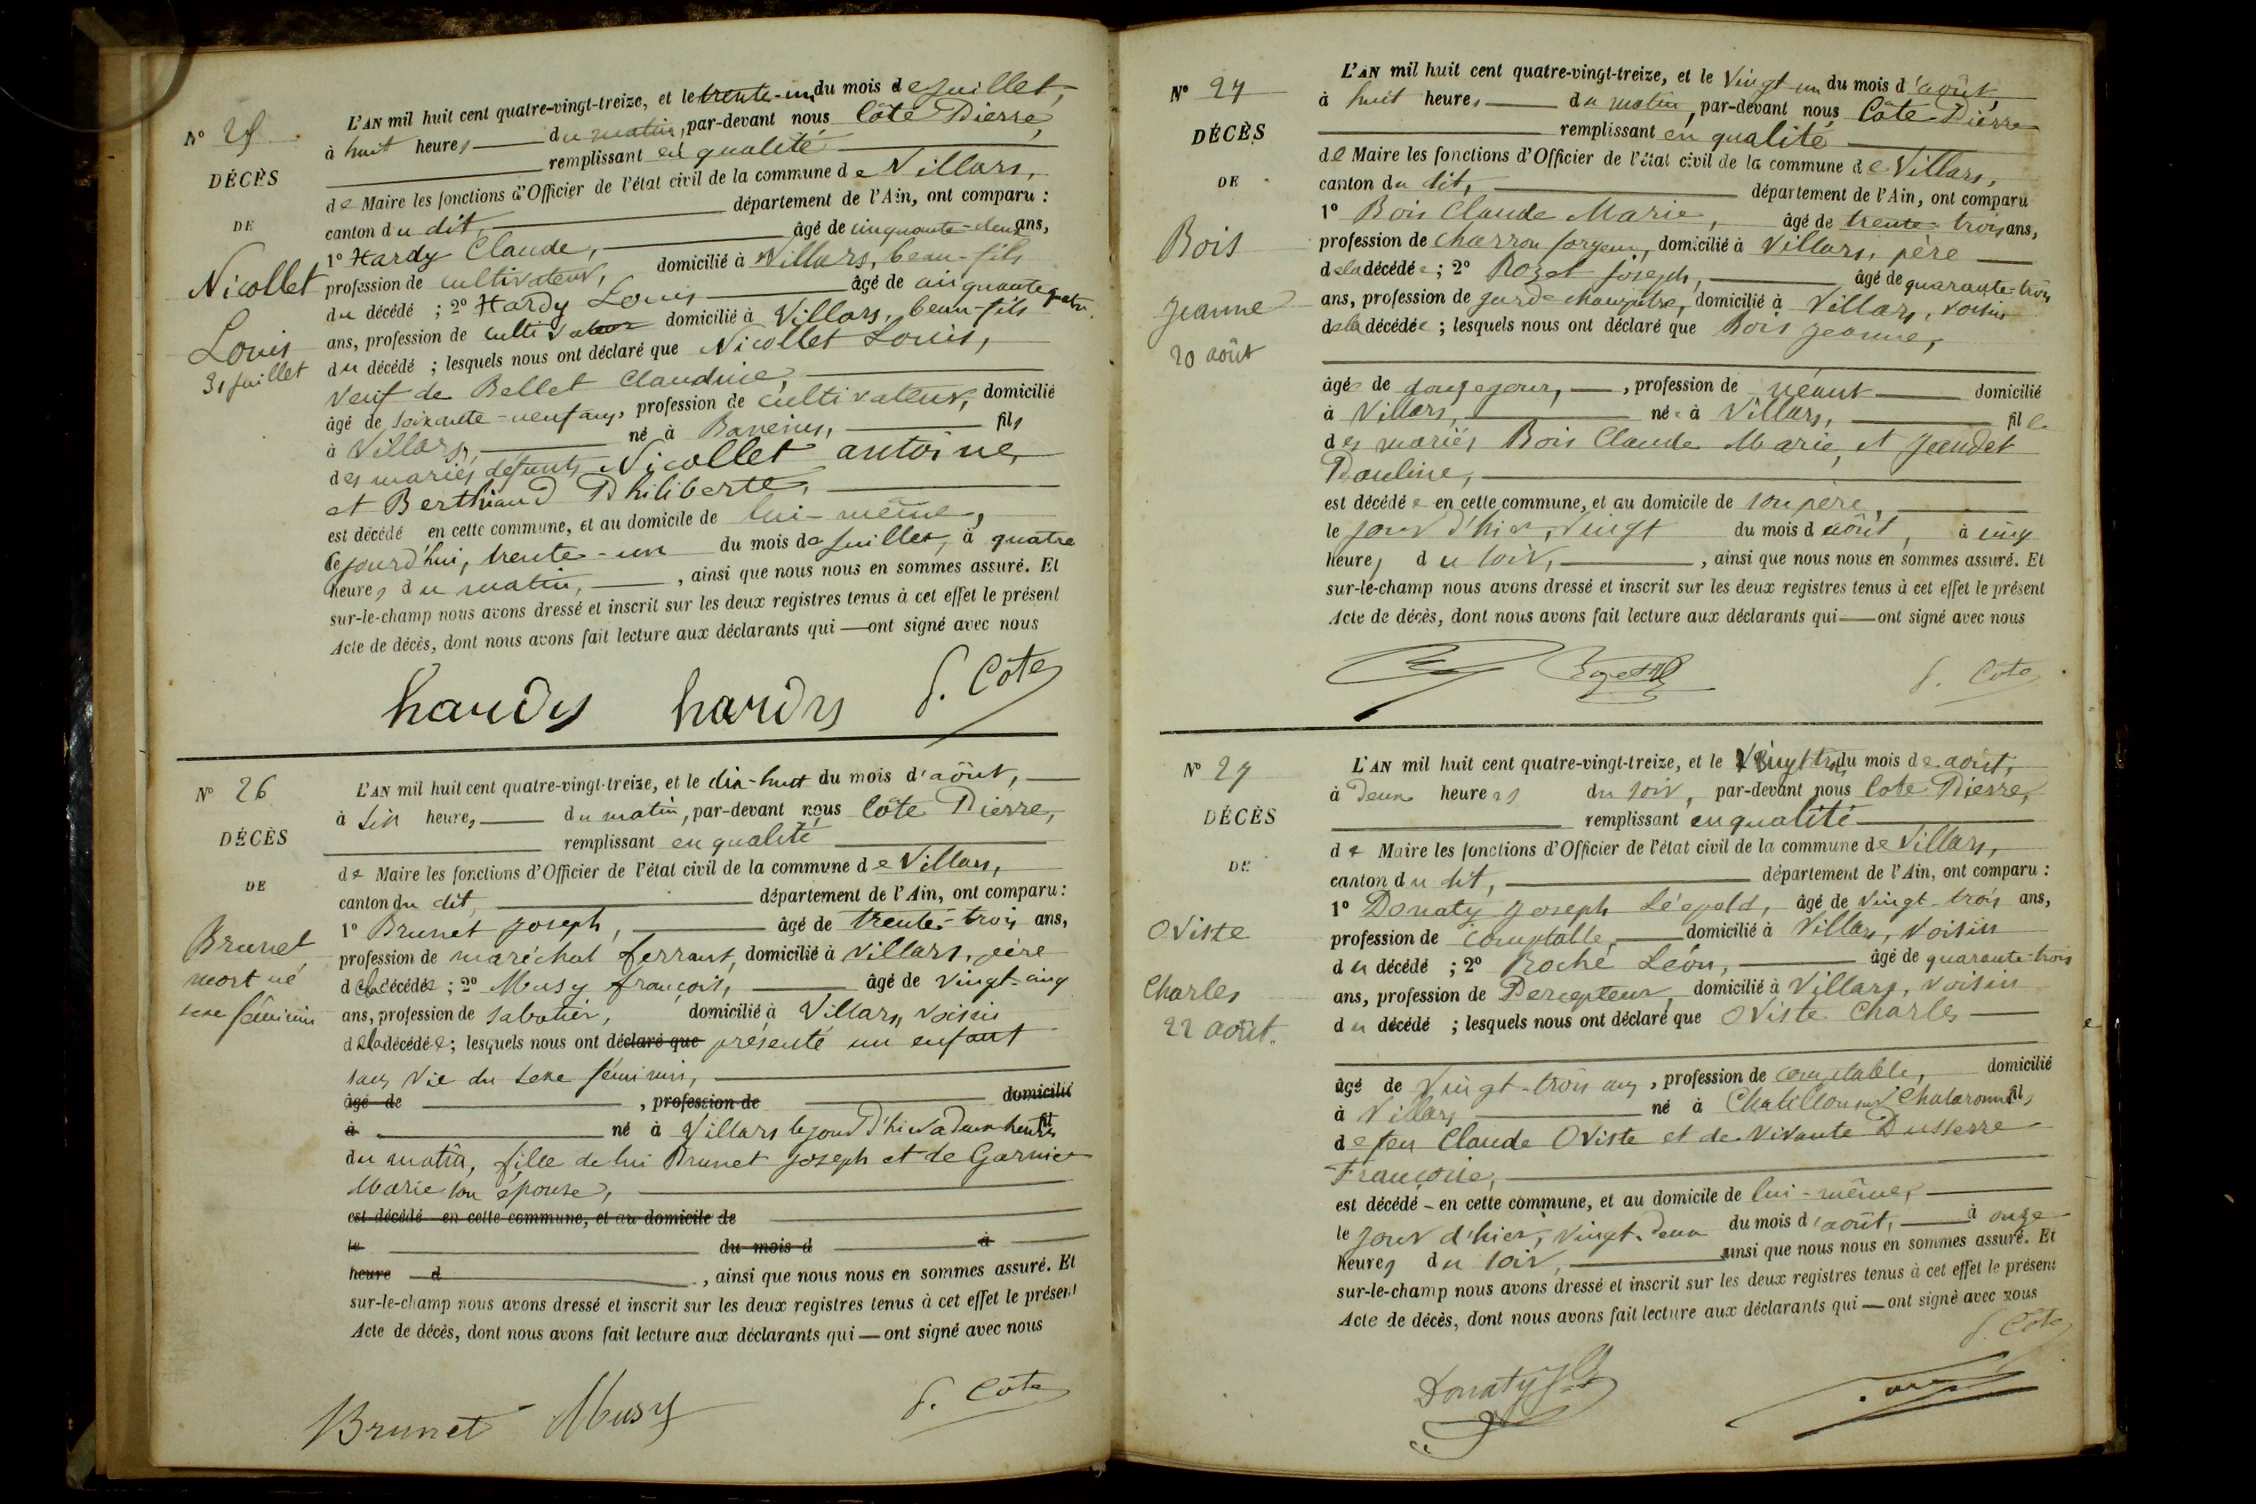 N° 25
DÉCÈS
DE
Nicollet
Louis
31 juillet
L'AN mil huit cent quatre-vingt-treize, et le trente-un du mois de juillet,
à huit heures du matin, par-devant nous Côte Pierre,
remplissant en qualité
de Maire les fonctions d'Officier de l'état civil de la commune de Villars,
canton du dit, département de l'Ain, ont comparu :
1° Hardy Claude, âgé de cinquante-deux ans,
profession de cultivateur, domicilié à Villars, beau-fils
du décédé ; 2° Hardy Louis âgé de cinquante quatre
ans, profession de cultivateur domicilié à Villars, beau-fils
du décédé ; lesquels nous ont déclaré que Nicollet Louis,
veuf de Bellet Claudine,
âgé de soixante-neuf ans, profession de cultivateur, domicilié
à Villars, né à fils
des mariés défunts Nicollet antoine
et Berthiaud Philiberte,
est décédé en cette commune, et au domicile de lui-même,
cejourd'hui, trente-un du mois de juillet, à quatre
heures du matin, , ainsi que nous nous en sommes assuré. Et
sur-le-champ nous avons dressé et inscrit sur les deux registres tenus à cet effet le présent
Acte de décès, dont nous avons fait lecture aux déclarants qui ont signé avec nous
hardy hardy P. Côte
N° 26
DÉCÈS
DE
Brunet
mort né
sexe féminin
L'AN mil huit cent quatre-vingt-treize, et le dix-huit du mois d'août,
à six heures du matin, par-devant nous Côte Pierre,
remplissant en qualité
de Maire les fonctions d'Officier de l'état civil de la commune de Villars,
canton du dit, département de l'Ain, ont comparu :
1° Brunet joseph, âgé de trente-trois ans,
profession de maréchal ferrant, domicilié à Villars, père
de la décédée ; 2° Musy françois, âgé de vingt-cinq
ans, profession de sabotier, domicilié à Villars, voisin
de la décédée ; lesquels nous ont déclaré que présenté un enfant
sans vie du sexe féminin,
âgé de , profession de domicilié
à né à Villars le jour d'hier à deux heures fil
du matin, fille de lui Brunet joseph et de Garnier
Marie son épouse,
est décédé en cette commune, et au domicile de
le du mois d à
heure d , ainsi que nous nous en sommes assuré. Et
sur-le-champ nous avons dressé et inscrit sur les deux registres tenus à cet effet le présent
Acte de décès, dont nous avons fait lecture aux déclarants qui ont signé avec nous
Brunet Musy P. Côte
N° 27
DÉCÈS
DE
Bois
Jeanne
20 août
L'AN mil huit cent quatre-vingt-treize, et le vingt un du mois d'août,
à huit heures du matin, par-devant nous Côte Pierre
remplissant en qualité
de Maire les fonctions d'Officier de l'état civil de la commune de Villars,
canton du dit, département de l'Ain, ont comparu
1° Bois Claude Marie, âgé de trente-trois ans,
profession de charron forgeur, domicilié à Villars, père
de la décédée ; 2° Rozet joseph, âgé de quarante-trois
ans, profession de garde champêtre, domicilié à Villars, voisin
de la décédée ; lesquels nous ont déclaré que Bois jeanne,
âgée de douze jours, , profession de néant domicilié
à Villars, née à Villars, fille
des mariés Bois Claude Marie, et Jeandet
Pauline,
est décédée en cette commune, et au domicile de son père,
le jour d'hier, vingt du mois d'août, à cinq
heures du soir, , ainsi que nous nous en sommes assuré. Et
sur-le-champ nous avons dressé et inscrit sur les deux registres tenus à cet effet le présent
Acte de décès, dont nous avons fait lecture aux déclarants qui ont signé avec nous
P. Côte
N° 29
DÉCÈS
DE
Oviste
Charles
22 août.
L'AN mil huit cent quatre-vingt-treize, et le vingt trois du mois de août,
à deux heures du soir, par-devant nous Cote Pierre,
remplissant en qualité
de Maire les fonctions d'Officier de l'état civil de la commune de Villars,
canton du dit, département de l'Ain, ont comparu :
1° Donaty joseph Léopold, âgé de vingt-trois ans,
profession de comptable, domicilié à Villars, voisin
du décédé ; 2° Roché Léon, âgé de quarante-trois
ans, profession de Percepteur, domicilié à Villars, voisin
du décédé ; lesquels nous ont déclaré que Oviste Charles
âgé de vingt-trois ans, profession de comptable, domicilié
à Villars né à Chatillon sur Chalaronne fils
de feu Claude Oviste et de vivante Dusserre
Françoise,
est décédé en cette commune, et au domicile de lui-même,
le jour d'hier, vingt-deux du mois d'août, à onze
heures du soir, ainsi que nous nous en sommes assuré. Et
sur-le-champ nous avons dressé et inscrit sur les deux registres tenus à cet effet le présent
Acte de décès, dont nous avons fait lecture aux déclarants qui ont signé avec nous
P. Cote
Donaty